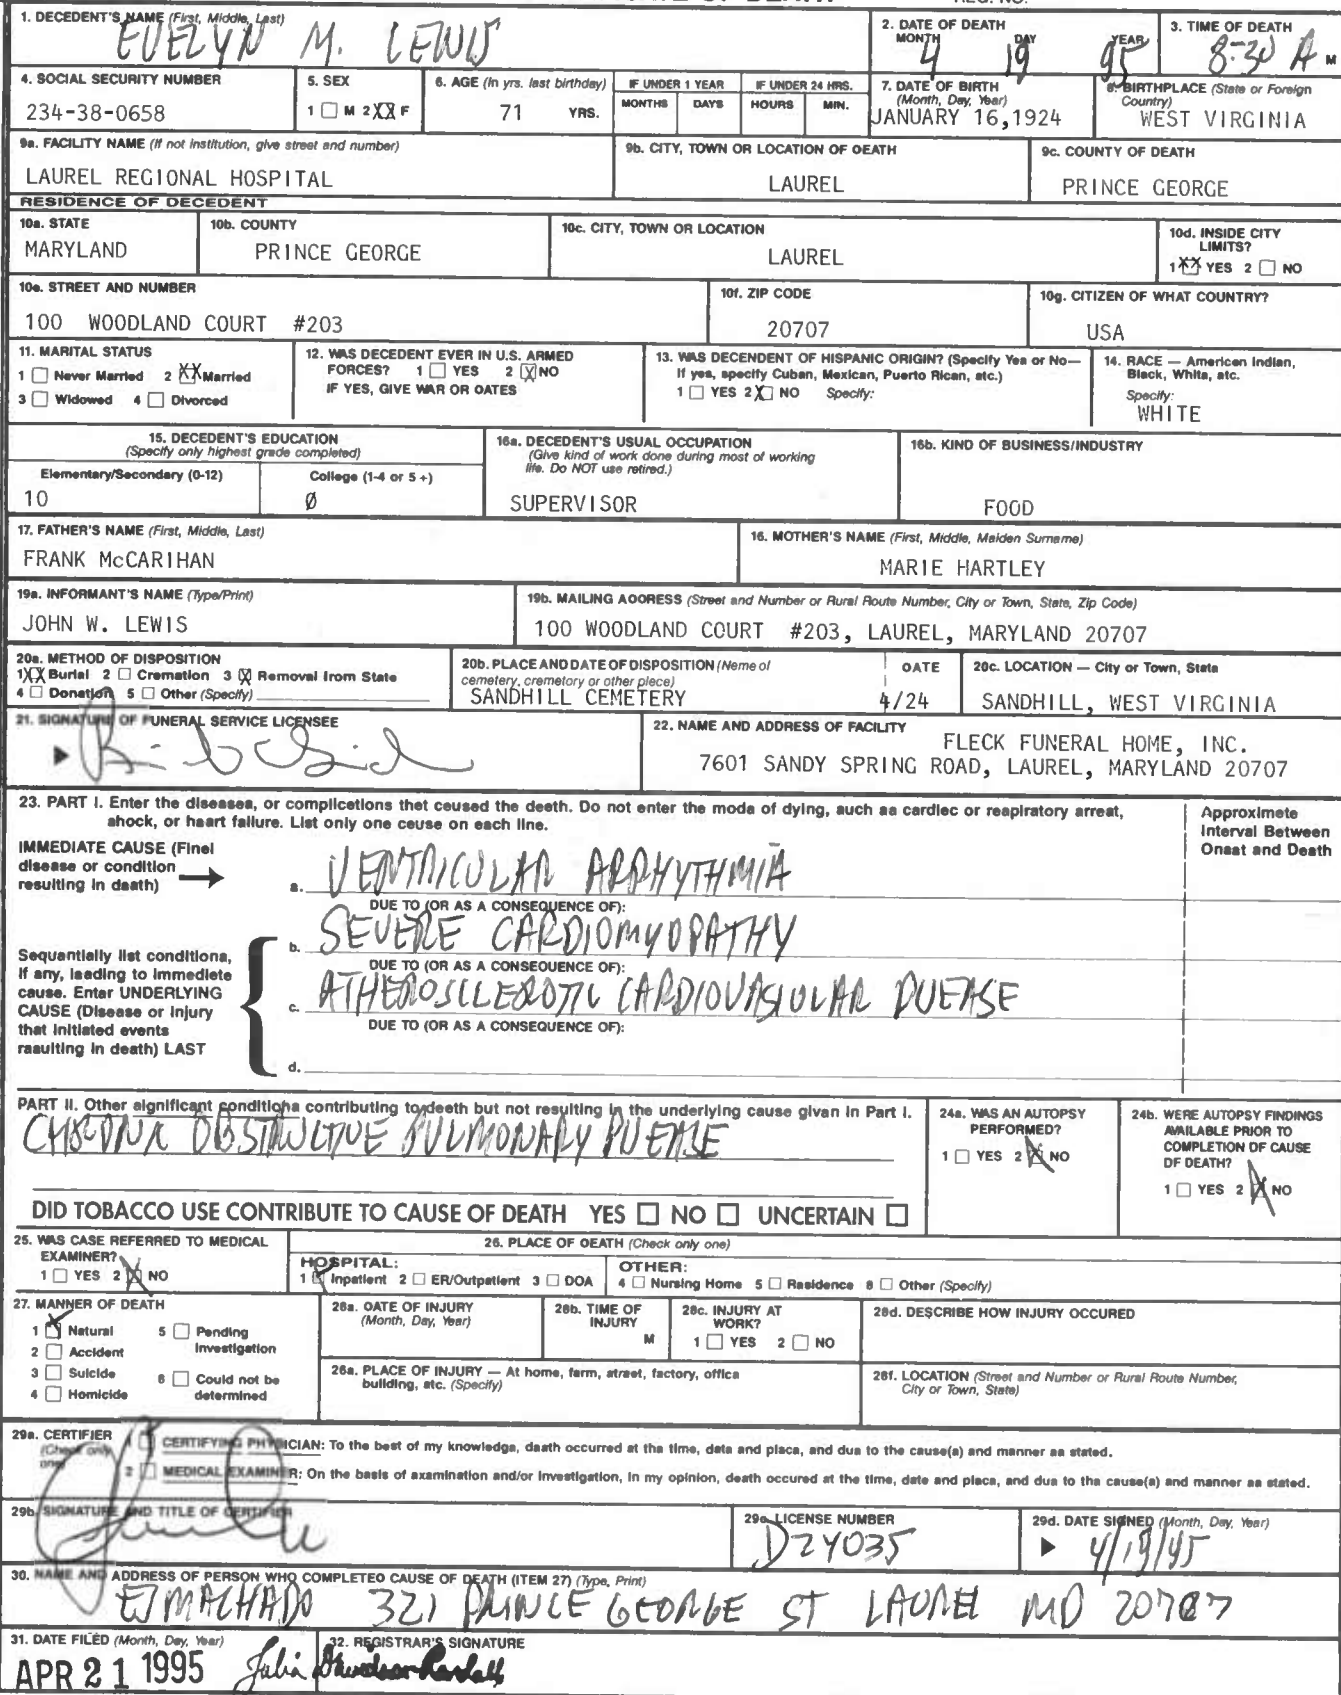 1. DECEDENT'S NAME (First, Middle, Last)
EVELYN M. LEWIS
2. DATE OF DEATH
MONTH DAY YEAR
4 19 95
3. TIME OF DEATH
8:30 A M
4. SOCIAL SECURITY NUMBER
234-38-0658
5. SEX
1 ☐ M 2 XX F
6. AGE (In yrs. last birthday)
71 YRS.
IF UNDER 1 YEAR
MONTHS DAYS
IF UNDER 24 HRS.
HOURS MIN.
7. DATE OF BIRTH
(Month, Day, Year)
JANUARY 16,1924
8. BIRTHPLACE (State or Foreign
Country)
WEST VIRGINIA
9a. FACILITY NAME (If not institution, give street and number)
LAUREL REGIONAL HOSPITAL
9b. CITY, TOWN OR LOCATION OF DEATH
LAUREL
9c. COUNTY OF DEATH
PRINCE GEORGE
RESIDENCE OF DECEDENT
10a. STATE
MARYLAND
10b. COUNTY
PRINCE GEORGE
10c. CITY, TOWN OR LOCATION
LAUREL
10d. INSIDE CITY
LIMITS?
1 XX YES 2 ☐ NO
10e. STREET AND NUMBER
100 WOODLAND COURT #203
10f. ZIP CODE
20707
10g. CITIZEN OF WHAT COUNTRY?
USA
11. MARITAL STATUS
1 ☐ Never Married 2 XX Married
3 ☐ Widowed 4 ☐ Divorced
12. WAS DECEDENT EVER IN U.S. ARMED
FORCES? 1 ☐ YES 2 X NO
IF YES, GIVE WAR OR DATES
13. WAS DECENDENT OF HISPANIC ORIGIN? (Specify Yes or No—
If yes, specify Cuban, Mexican, Puerto Rican, etc.)
1 ☐ YES 2 X NO Specify:
14. RACE — American Indian,
Black, White, etc.
Specify:
WHITE
15. DECEDENT'S EDUCATION
(Specify only highest grade completed)
Elementary/Secondary (0-12)
10
College (1-4 or 5+)
Ø
16a. DECEDENT'S USUAL OCCUPATION
(Give kind of work done during most of working
life. Do NOT use retired.)
SUPERVISOR
16b. KIND OF BUSINESS/INDUSTRY
FOOD
17. FATHER'S NAME (First, Middle, Last)
FRANK McCARIHAN
16. MOTHER'S NAME (First, Middle, Maiden Surname)
MARIE HARTLEY
19a. INFORMANT'S NAME (Type/Print)
JOHN W. LEWIS
19b. MAILING ADDRESS (Street and Number or Rural Route Number, City or Town, State, Zip Code)
100 WOODLAND COURT #203, LAUREL, MARYLAND 20707
20a. METHOD OF DISPOSITION
1 XX Burial 2 ☐ Cremation 3 X Removal from State
4 ☐ Donation 5 ☐ Other (Specify)
20b. PLACE AND DATE OF DISPOSITION (Name of
cemetery, crematory or other place)
SANDHILL CEMETERY
DATE
4/24
20c. LOCATION — City or Town, State
SANDHILL, WEST VIRGINIA
21. SIGNATURE OF FUNERAL SERVICE LICENSEE
22. NAME AND ADDRESS OF FACILITY
FLECK FUNERAL HOME, INC.
7601 SANDY SPRING ROAD, LAUREL, MARYLAND 20707
23. PART I. Enter the diseases, or complications that caused the death. Do not enter the mode of dying, such as cardiac or respiratory arrest,
shock, or heart failure. List only one cause on each line.
Approximate
Interval Between
Onset and Death
IMMEDIATE CAUSE (Final
disease or condition
resulting in death)
a. VENTRICULAR ARRHYTHMIA
DUE TO (OR AS A CONSEQUENCE OF):
b. SEVERE CARDIOMYOPATHY
DUE TO (OR AS A CONSEQUENCE OF):
c. ATHEROSCLEROTIC CARDIOVASCULAR DISEASE
DUE TO (OR AS A CONSEQUENCE OF):
d.
Sequentially list conditions,
if any, leading to immediate
cause. Enter UNDERLYING
CAUSE (Disease or injury
that initiated events
resulting in death) LAST
PART II. Other significant conditions contributing to death but not resulting in the underlying cause given in Part I.
CHRONIC OBSTRUCTIVE PULMONARY DISEASE
24a. WAS AN AUTOPSY
PERFORMED?
1 ☐ YES 2 X NO
24b. WERE AUTOPSY FINDINGS
AVAILABLE PRIOR TO
COMPLETION OF CAUSE
OF DEATH?
1 ☐ YES 2 X NO
DID TOBACCO USE CONTRIBUTE TO CAUSE OF DEATH YES ☐ NO ☐ UNCERTAIN ☐
25. WAS CASE REFERRED TO MEDICAL
EXAMINER?
1 ☐ YES 2 X NO
26. PLACE OF DEATH (Check only one)
HOSPITAL:
1 ☑ Inpatient 2 ☐ ER/Outpatient 3 ☐ DOA
OTHER:
4 ☐ Nursing Home 5 ☐ Residence 8 ☐ Other (Specify)
27. MANNER OF DEATH
1 ☑ Natural 5 ☐ Pending
Investigation
2 ☐ Accident
3 ☐ Suicide 6 ☐ Could not be
determined
4 ☐ Homicide
28a. DATE OF INJURY
(Month, Day, Year)
28b. TIME OF
INJURY
M
28c. INJURY AT
WORK?
1 ☐ YES 2 ☐ NO
28d. DESCRIBE HOW INJURY OCCURED
28a. PLACE OF INJURY — At home, farm, street, factory, office
building, etc. (Specify)
28f. LOCATION (Street and Number or Rural Route Number,
City or Town, State)
29a. CERTIFIER
(Check only
one)
1 ☐ CERTIFYING PHYSICIAN: To the best of my knowledge, death occurred at the time, date and place, and due to the cause(s) and manner as stated.
2 ☐ MEDICAL EXAMINER: On the basis of examination and/or investigation, in my opinion, death occured at the time, date and place, and due to the cause(s) and manner as stated.
29b. SIGNATURE AND TITLE OF CERTIFIER
29c. LICENSE NUMBER
D24035
29d. DATE SIGNED (Month, Day, Year)
4/19/95
30. NAME AND ADDRESS OF PERSON WHO COMPLETED CAUSE OF DEATH (ITEM 27) (Type, Print)
EJ MACHADO 321 PRINCE GEORGE ST LAUREL MD 20707
31. DATE FILED (Month, Day, Year)
APR 21 1995
32. REGISTRAR'S SIGNATURE
Julia Davidson-Randall